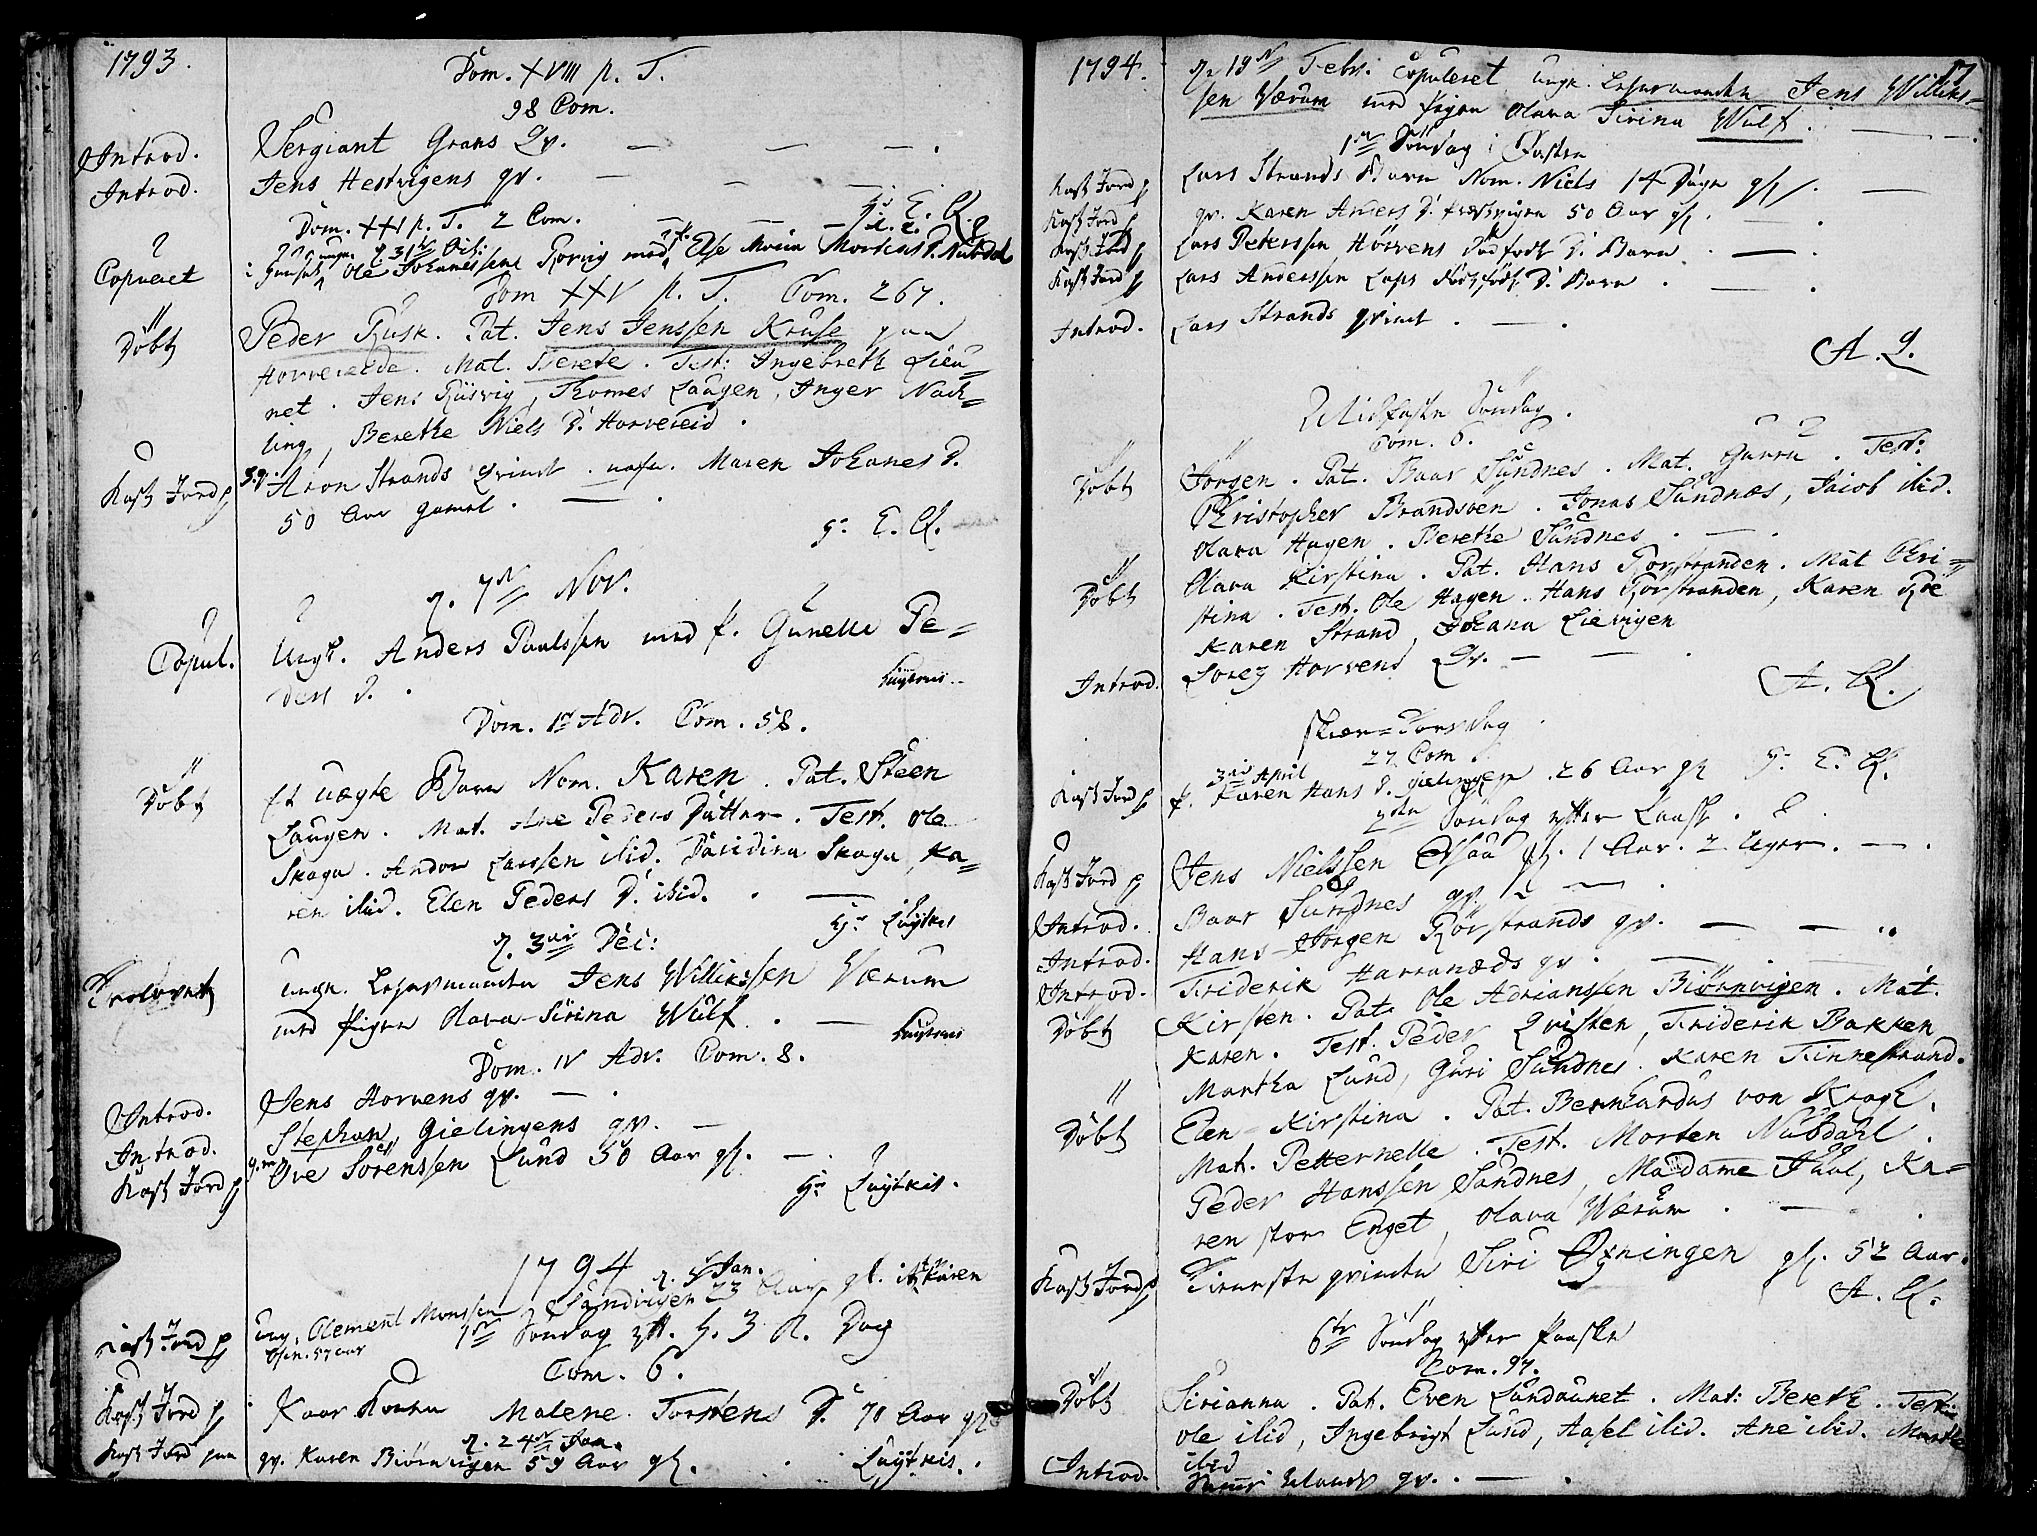 1793.
Dom. XVIII p. T.
98 Com.
Introd. Sergiant Grans Qv.
Introd. Jens Hestvigens qv.
Dom. XXI p. T. 2 Com.
d. 31 Oct:
Copuleret Ole Johannessens Rørvig med Else Maria Mortens D. Nubdal
Dom XXV p. T. Com. 267.
Døbt Peder Rusk. Pat. Jens Jenssen Kruse paa
Horvereide. Mat. Berete. Test: Ingebreth Lieu=
net. Jens Rüsvig, Thomes Laugen, Inger Nach=
ling, Berethe Niels D. Horvereid.
Kast Jord p Aron Strands Qvinde nafn. Maren Johanes D.
50 Aar gamel.
d. 7 Nov.
Copul. Ungk. Anders Paulssen med p. Gunelle Pe=
ders D.
Dom. 1 Adv. Com. 58.
Døbt Et uægte Barn Nom. Karen. Pat. Steen
Laugen. Mat. Ane Peders Datter. Test. Ole
Skaga. Andor Larssen ibid. Davidina Skaga, Ka=
ren ibid. Elen Peders D. ibid.
d. 3 Dec:
Trolovet ungk. Lehnsmanden Jens Williksen Værum
med Pigen Olava Sirina Wulf.
Dom. IV Adv. Com. 8.
Introd. Jens Horvens qv.
Introd. Stephan Gielingens qv.
Kast Jord p Ove Sørenssen Lund 50 Aar gl.
1794
d. 4 Jan.
Kast Jord p Ung. Clement Monssen Sandvigen 23 Aar gl.
1 Søndag eft. H. 3 K. Dag
Com. 6.
Kast Jord p Kaar Konen Malene Torstens D. 70 Aar gl
d. 24 Jan.
Kast Jord paa qv. Karen Biørnvigen 59 Aar gl.
1794.
17
d. 19 Febr. Copuleret ungk. Lehnsmanden Jens Williks=
sen Værum med Pigen Olava Sirina Wulf.
1 Søndag i Fasten
Kast Jord p Lars Strands Barn Nom. Niels 14 Dage gl.
Kast Jord p qv. Karen Anders D. 50 Aar gl.
Kast Jord p Lars Peterssen Hørvens Dødfødt D. Barn.
Kast Jord p Lars Anderssen Laps Dødfødt D. Barn.
Introd. Lars Strands qvinde.
Midfaste Søndag.
Com. 6.
Døbt Jørgen. Pat. Baar Sundnes. Mat. Guru. Test:
Christopher Brandsven. Jonas Sundnæs, Jacob ibid.
Olava Hagen. Berethe Sundnes.
Døbt Olava Kirstina. Pat. Hans Rørstranden. Mat Chri=
stina. Test. Ole Hagen. Hans Rørstranden, Karen
Karen Strand, Johana Lievigen
Introd. Horvend Qv.
Skiær=Torsdag
27 Com.
3 April
Kast Jord p p. Karen Hans D. Gielingen 26 Aar gl
2den Søndag efter Paaske.
Kast Jord p Jens Nielssen gl. 1 Aar. 2 Uger.
Introd. Baar Sundnes qv.
Introd. Hans Jørgen Rørstrands qv.
Introd. Friderik Harranæds qv.
Døbt Kirsten. Pat. Ole Adrianssen Biørnvigen. Mat.
Karen. Test. Peder Qvisten, Friderik Bakken
Martha Lund, Guri Sundnes. Karen Finnestrand.
Døbt Elen Kirstina. Pat. Bernhardus von Krogh.
Mat. Petternelle. Test. Morten Nubdahl.
Peder Hanssen Sandnes, Madame Juul, Ka=
ren stor Enget, Olava Wærum.
Kast Jord p qvinde Siri Øxningen gl. 52 Aar.
6te Søndag efter Paaske
Com. 97.
Døbt Sirianna. Pat. Even Lundaunet. Mat: Bereth. Test:
Ole ibid, Ingebrigt Lund, Axel ibid. Ane ibid.
ibid
Introd. qv.